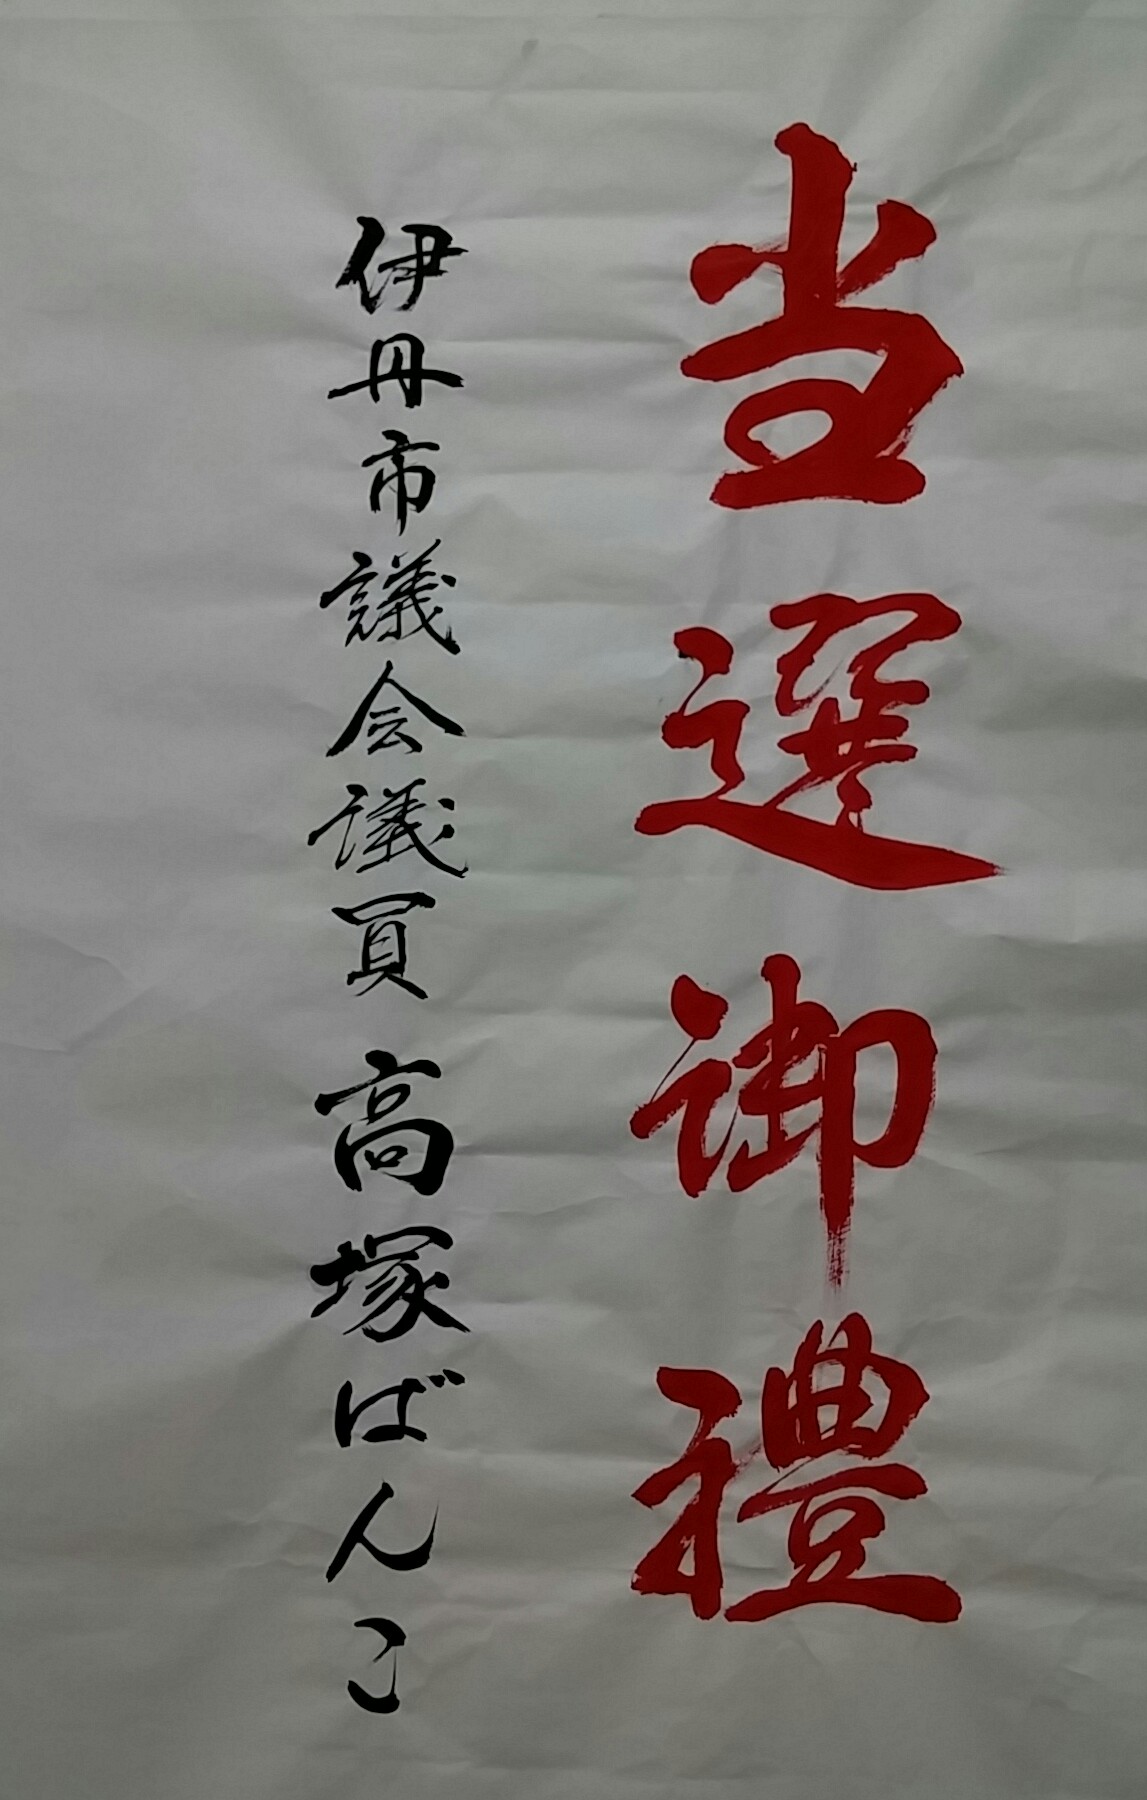 当選御禮
伊丹市議会議員 高塚ばんこ